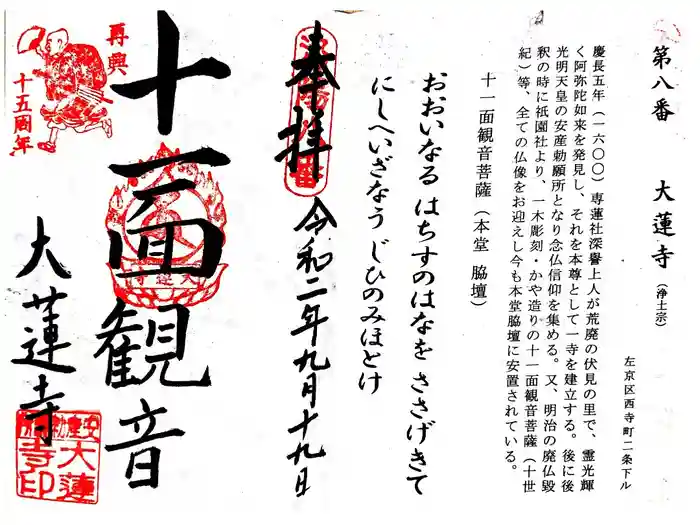 第八番 大蓮寺（浄土宗）
左京区西寺町二条下ル
慶長五年（一六〇〇）専蓮社深譽上人が荒廃の伏見の里で、霊光輝
く阿弥陀如来を発見し、それを本尊として一寺を建立する。後に後
光明天皇の安産勅願所となり念仏信仰を集める。又、明治の廃仏毀
釈の時に祇園社より、一木彫刻・かや造りの十一面観音菩薩（十世
紀）等、全ての仏像をお迎えし今も本堂脇壇に安置されている。
十一面観音菩薩（本堂 脇壇）
おおいなる はちすのはなを ささげきて
にしへいざなう じひのみほとけ
奉拝
令和二年九月十九日
十一面観音
大蓮寺
再興
十五周年
大蓮
寺印